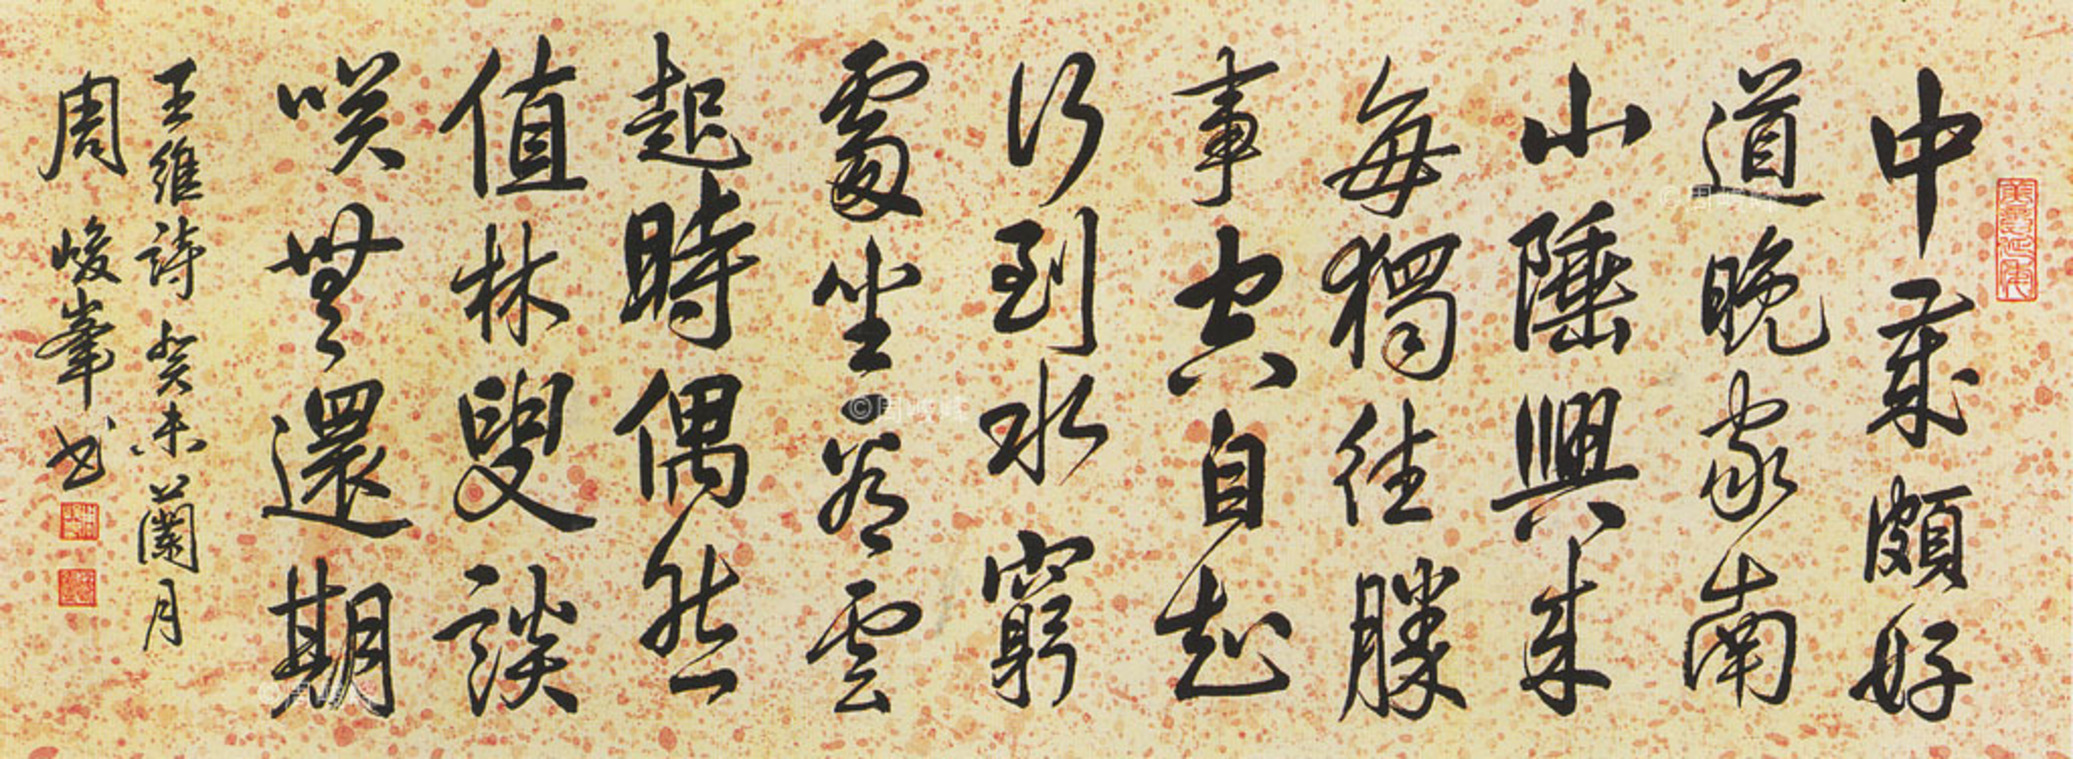 中歲頗好
道晚家南
山陲興来
每獨往勝
事空自起
行到水窮
處坐看雲
起時偶然
值林叟談
咲無還期
王維詩癸未蘭月
周峻峯书